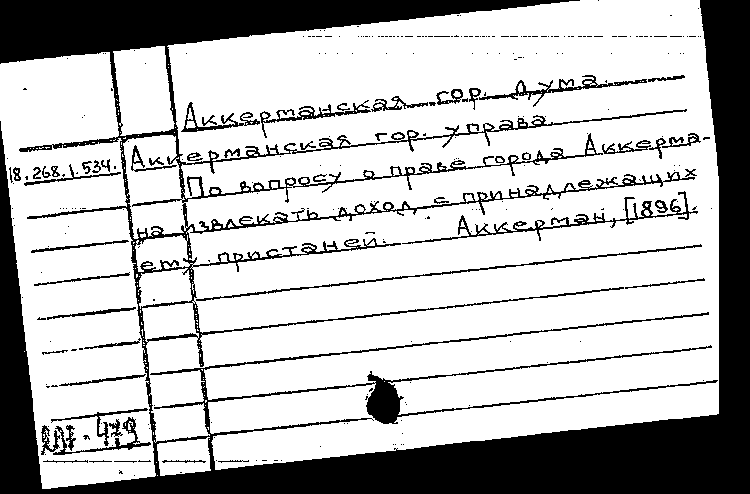 Аккерманская гор. дума.
Аккерманская гор. управа.
18.268.1.534.
По вопросу о праве города Аккерма-
на извлекать доход с принадлежащих
ему пристаней. Аккерман, [1896].
479